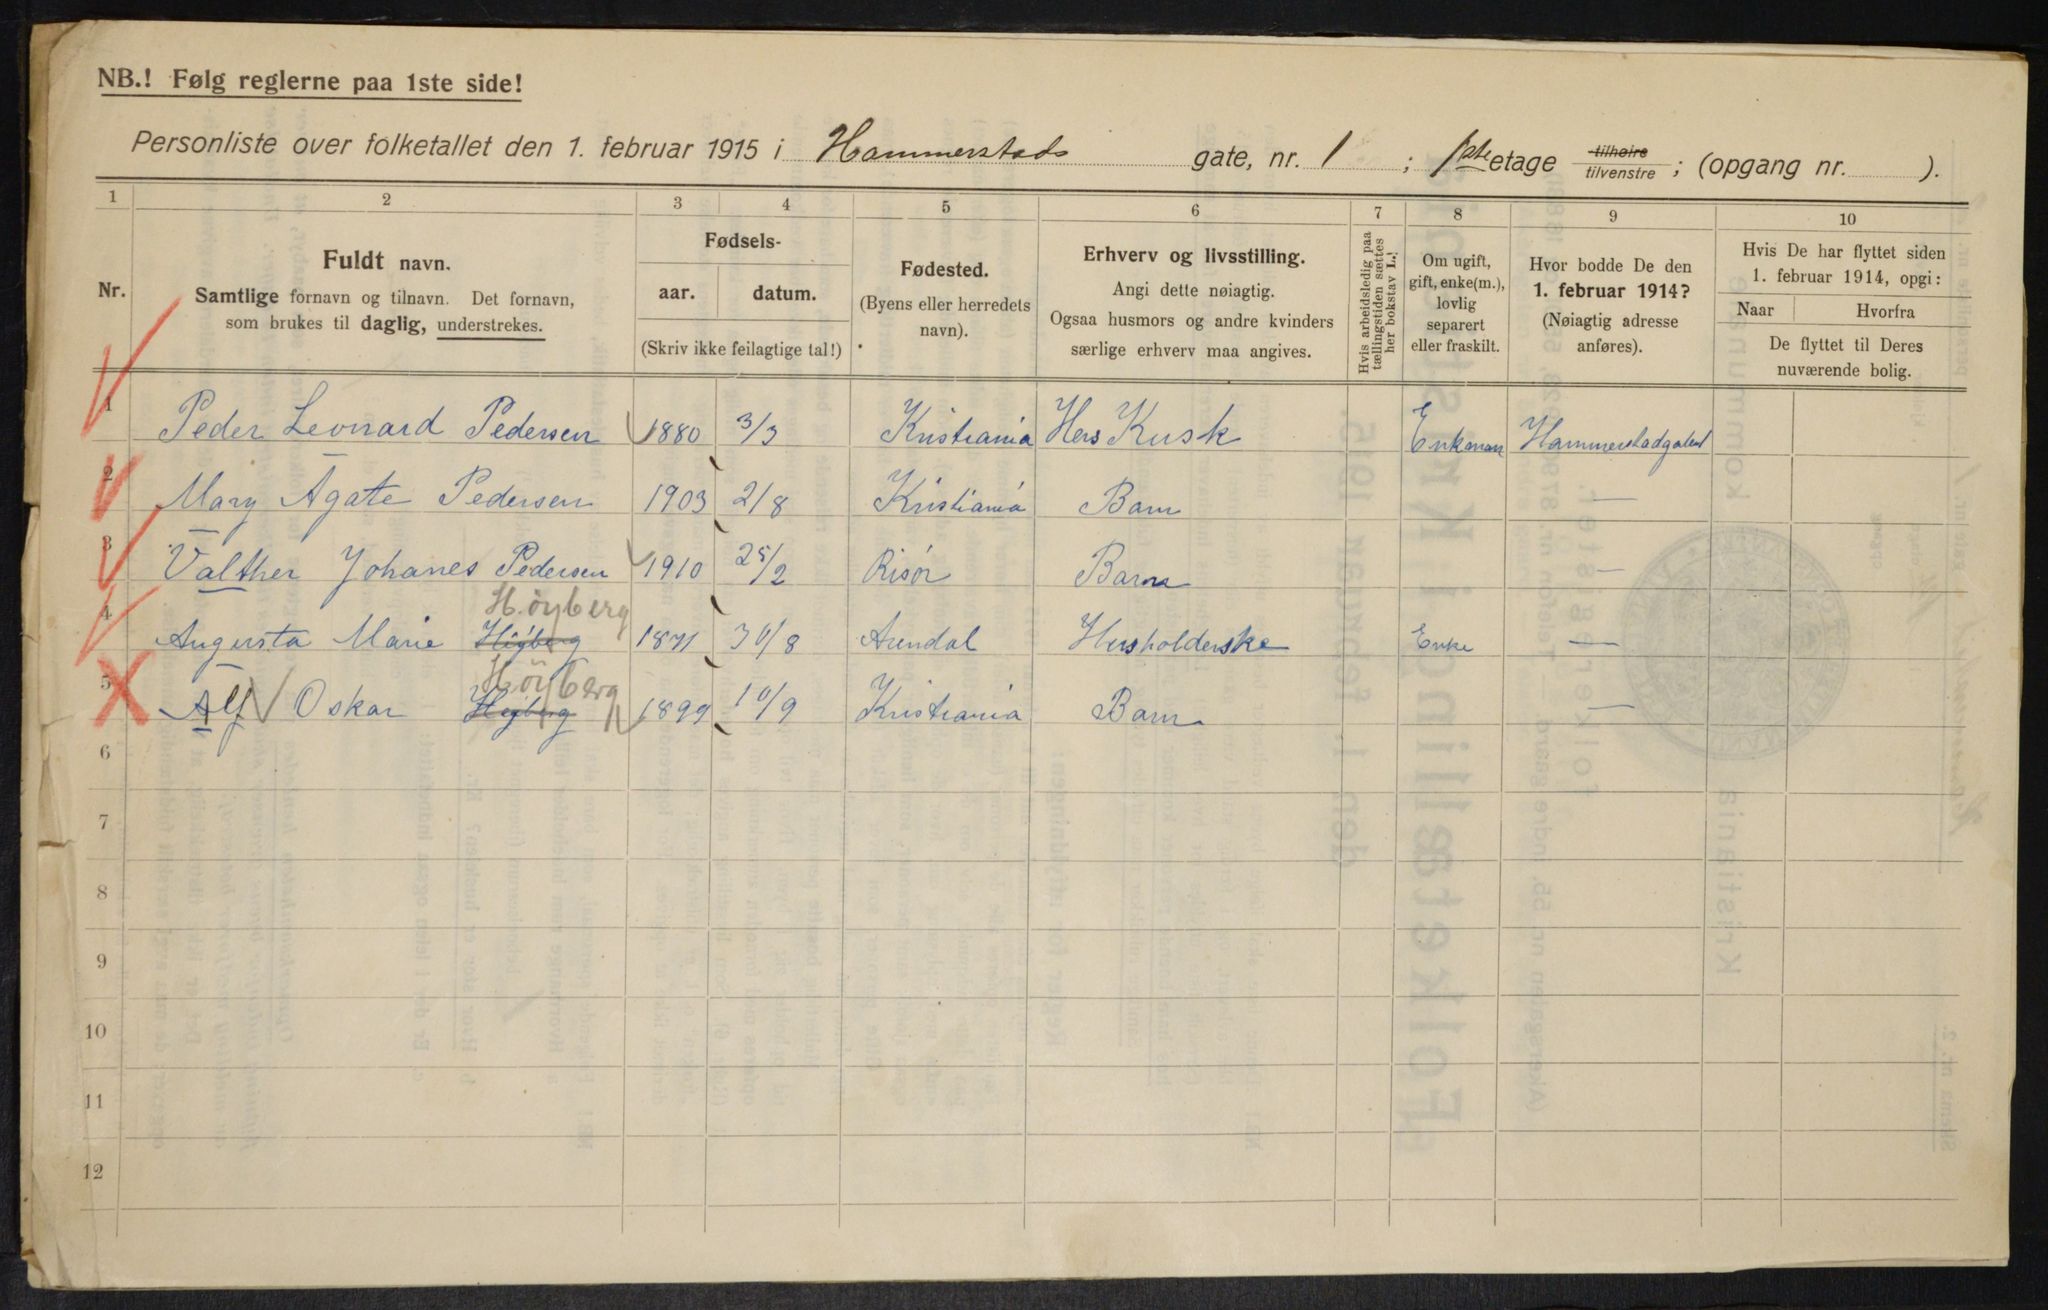 NB.! Følg reglerne paa 1ste side!
Personliste over folketallet den 1. februar 1915 i Hammerstads gate, nr. 1 ; 1ste etage tilhøire tilvenstre ; (opgang nr. ).
1 2 3 4 5 6 7 8 9 10
Nr.
Fuldt navn.
Samtlige fornavn og tilnavn. Det fornavn,
som brukes til daglig, understrekes.
Fødsels-
aar. datum.
(Skriv ikke feilagtige tal!)
Fødested.
(Byens eller herredets
navn).
Erhverv og livsstilling.
Angi dette nøiagtig.
Ogsaa husmors og andre kvinders
særlige erhverv maa angives.
Hvis arbeidsledig paa
tællingstiden sættes
her bokstav L.!
Om ugift,
gift, enke(m.),
lovlig
separert
eller fraskilt.
Hvor bodde De den
1. februar 1914?
(Nøiagtig adresse
anføres).
Hvis De har flyttet siden
1. februar 1914, opgi:
Naar Hvorfra
De flyttet til Deres
nuværende bolig.
1 Peder Leonard Pedersen 1880 3/3 Kristiania Kusk Enkeman
2 Mary Agate Pedersen 1903 2/8 Kristiania Barn —
3 Valther Johanes Pedersen 1910 25/2 Risør Barn —
Høyberg
4 Augusta Marie 1871 30/8 Arendal Husholderske Enke —
Høyberg
5 Alf Oskar 1899 10/9 Kristiania Barn —
6
7
8
9
10
11
12